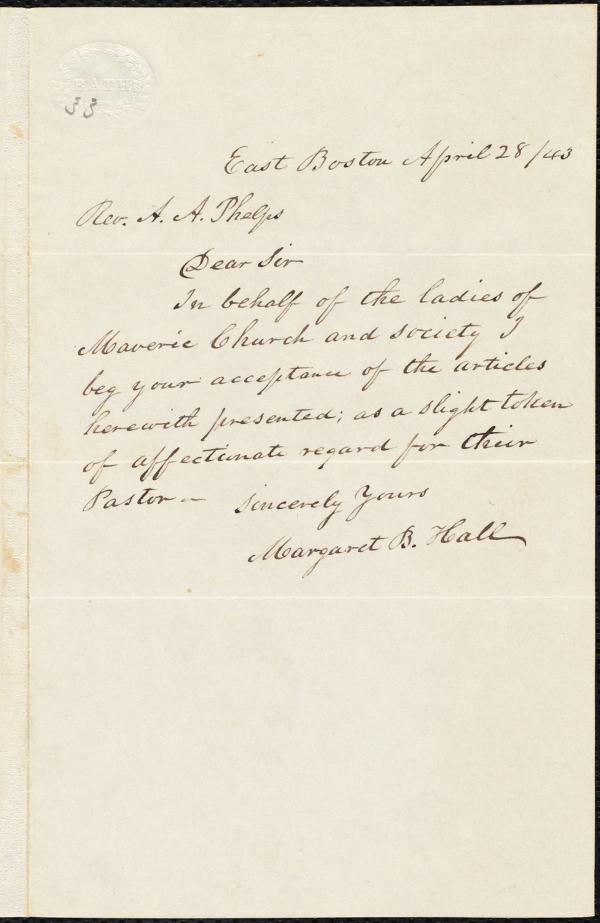 BATH
33
East Boston April 28/43
Rev. A. A. Phelps
Dear Sir
In behalf of the ladies of
Maveric Church and society I
beg your acceptance of the articles
herewith presented; as a slight token
of affectionate regard for their
Pastor -- Sincerely Yours
Margaret B. Hall